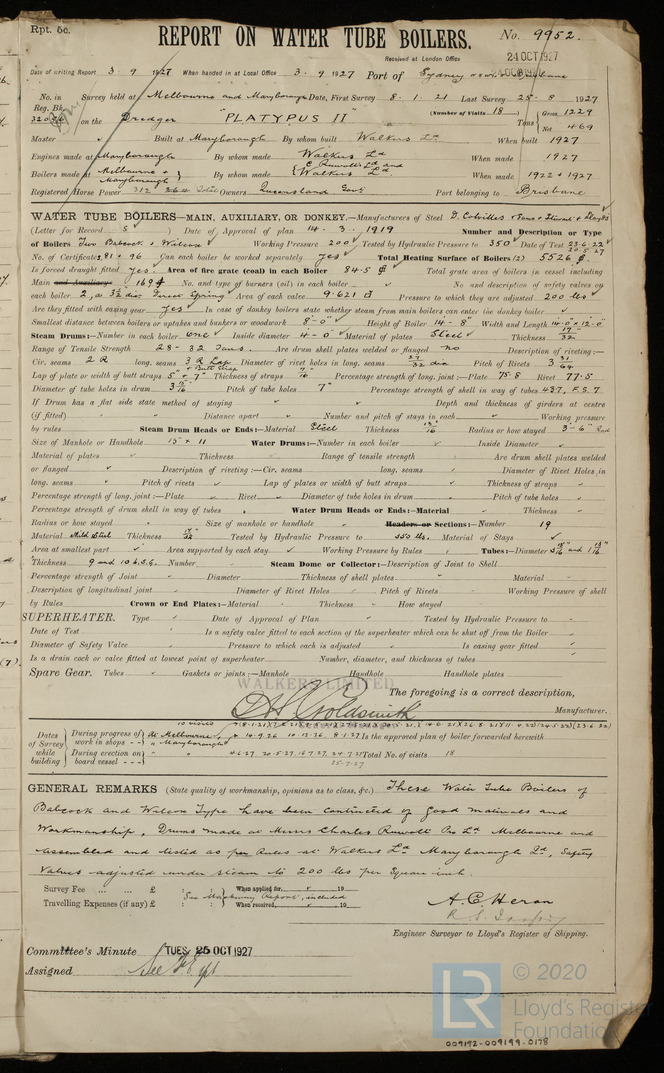 Rpt. 6c.
REPORT ON WATER TUBE BOILERS.
No. 9952.
Received at London Office 24 OCT 1927
Date of writing Report 3. 9. 1927 When handed in at Local Office 3. 9. 1927 Port of Sydney
No. in Survey held at Melbourne and Maryborough Date, First Survey 8. 1. 21 Last Survey 25-8 1927
Reg. Bk. (Number of Visits 18) Gross 1229
on the Dredger "PLATYPUS II" Tons Net 469
Master Built at Maryborough By whom built Walkers Ld When built 1927
Engines made at Maryborough By whom made Walkers Ld When made 1927
Boilers made at Melbourne & Maryborough By whom made C. Ruwolt Ld and Walkers Ld When made 1922 & 1927
Registered Horse Power 312 Owners Queensland Govt Port belonging to Brisbane
WATER TUBE BOILERS—MAIN, AUXILIARY, OR DONKEY.—Manufacturers of Steel D. Colvilles & Sons
(Letter for Record S) Date of Approval of plan 14. 3. 1919 Number and Description or Type
of Boilers Two Babcock & Wilcox Working Pressure 200 Tested by Hydraulic Pressure to 350 Date of Test 23-6-22 20-5-27
No. of Certificate 81 & 96 Can each boiler be worked separately yes Total Heating Surface of Boilers (2) 5526
Is forced draught fitted yes. Area of fire grate (coal) in each Boiler 84.5 Total grate area of boilers in vessel including
Main and Auxiliary 169 No. and type of burners (oil) in each boiler No. and description of safety valves on
each boiler 2, 3½ dia Direct Spring Area of each valve 9.621 Pressure to which they are adjusted 200 lbs
Are they fitted with easing gear yes In case of donkey boilers state whether steam from main boilers can enter the donkey boiler
Smallest distance between boilers or uptakes and bunkers or woodwork 8'-0" Height of Boiler 14-8" Width and Length 14-0 x 12-0"
Steam Drums:—Number in each boiler one Inside diameter 4-0 Material of plates Steel Thickness 17/32
Range of Tensile Strength 28-32 Tons. Are drum shell plates welded or flanged no Description of riveting:—
Cir. seams 2 R long. seams 3 R Lap Diameter of rivet holes in long. seams 27/32 dia Pitch of Rivets 3 31/64
Lap of plate or width of butt straps 5" & 7" Thickness of straps 7/16 Percentage strength of long. joint:—Plate 75.8 Rivet 77.5
Diameter of tube holes in drum Pitch of tube holes 7" Percentage strength of shell in way of tubes 437, F.S 7
If Drum has a flat side state method of staying Depth and thickness of girders at centre
(if fitted) Distance apart Number and pitch of stays in each Working pressure
by rules Steam Drum Heads or Ends:—Material Steel Thickness 13/16 Radius or how stayed 3'-6" Rad
Size of Manhole or Handhole 15 x 11 Water Drums:—Number in each boiler Inside Diameter
Material of plates Thickness Range of tensile strength Are drum shell plates welded
or flanged Description of riveting:—Cir. seams long. seams Diameter of Rivet Holes in
long. seams Pitch of rivets Lap of plates or width of butt straps Thickness of straps
Percentage strength of long. joint:—Plate Rivet Diameter of tube holes in drum Pitch of tube holes
Percentage strength of drum shell in way of tubes Water Drum Heads or Ends:—Material Thickness
Radius or how stayed Size of manhole or handhole Headers or Sections:—Number 19
Material Mild Steel Thickness 17/32 Tested by Hydraulic Pressure to 350 lbs. Material of Stays
Area at smallest part Area supported by each stay Working Pressure by Rules Tubes:—Diameter 3 13/16 and 1 13/16
Thickness 9 and 10 L.S.G. Number Steam Dome or Collector:—Description of Joint to Shell
Percentage strength of Joint Diameter Thickness of shell plates Material
Description of longitudinal joint Diameter of Rivet Holes Pitch of Rivets Working Pressure of shell
by Rules Crown or End Plates:—Material Thickness How stayed
SUPERHEATER. Type Date of Approval of Plan Tested by Hydraulic Pressure to
Date of Test Is a safety valve fitted to each section of the superheater which can be shut off from the Boiler
Diameter of Safety Valve Pressure to which each is adjusted Is easing gear fitted
Is a drain cock or valve fitted at lowest point of superheater Number, diameter, and thickness of tubes
Spare Gear. Tubes Gaskets or joints:—Manhole Handhole Handhole plates
WALKERS LIMITED
The foregoing is a correct description,
Goldsmith Manufacturer.
10 visits
Dates of Survey while building
During progress of work in shops -- At Melbourne & Maryborough 14.9.26 10.12.26 8.1.27 Is the approved plan of boiler forwarded herewith
During erection on board vessel --- 4-6-27 20-5-27 15-7-27 24-7-27 Total No. of visits 18
25-7-27
GENERAL REMARKS (State quality of workmanship, opinions as to class, &c.) These Water Tube Boilers of
Babcock and Wilcox Type have been contructed of good materials and
Workmanship, Drums made at Messrs Charles Ruwolt Pro Ld Melbourne and
assembled and tested as per Rules at Walkers Ld Maryborough Qd, Safety
Valves adjusted under steam to 200 lbs per square inch.
Survey Fee ... ... £ : : When applied for, 19
See Machinery Report, included
Travelling Expenses (if any) £ : : When received, 19
A. C. Heron
Engineer Surveyor to Lloyd's Register of Shipping.
Committee's Minute TUES 25 OCT 1927
Assigned See
LR © 2020
Lloyd's Register
Foundation
009192-009199-0178